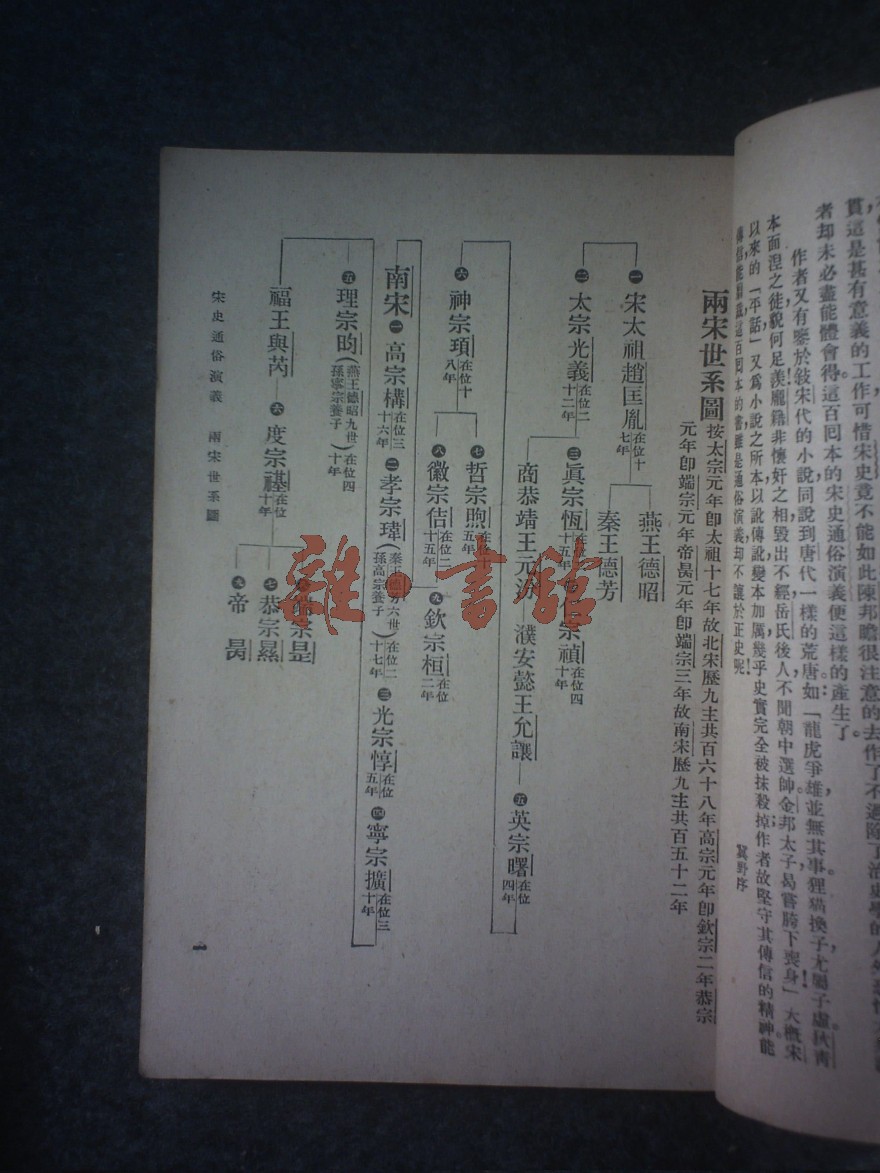 貫，這是甚有意義的工作可惜宋史竟不能如此陳邦瞻很注意的去作了不過除了治史學的人外
者却未必盡能體會得這百囘本的宋史通俗演義便這樣的產生了。
作者又有鑒於敍宋代的小說同說到唐代一樣的荒唐如「龍虎爭雄並無其事狸猫換子尤屬子虛狄青
本面涅之徒貌何足羨龐籍非懷奸之相毀出不經岳氏後人不聞朝中選帥金邦太子曷嘗胯下喪身」大槪宋
以來的「平話」又爲小說之所本以說傳說變本加厲幾乎史實完全被抹殺掉作者故堅守其傳信的精神能
這百囘本的書雖是通俗演義却不讓於正史呢！
兩宋世系圖 按太宗元年卽太祖十七年故北宋歷九主共百六十八年高宗元年卽欽宗二年恭宗
元年卽端宗元年帝昺元年卽端宗三年故南宋歷九主共百五十二年
一 宋太祖趙匡胤 在位十七年
燕王德昭
秦王德芳
二 太宗光義 在位二十二年
三 眞宗恆 在位二十五年
宗禎 在位四十年
商恭靖王元份
濮安懿王允讓
五 英宗曙 在位四年
六 神宗頊 在位十八年
七 哲宗煦 在位十五年
八 徽宗佶 在位二十五年
九 欽宗桓 在位二年
南宋
一 高宗構 在位三十六年
二 孝宗瑋（秦王德芳六世孫高宗養子）在位二十七年
三 光宗惇 在位五年
四 寧宗擴 在位三十年
五 理宗昀（燕王德昭九世孫寧宗養子）在位四十年
福王與芮
六 度宗禥 在位十年
端宗昰
七 恭宗㬎
九 帝昺
宋史通俗演義 兩宋世系圖
一
雜·書館